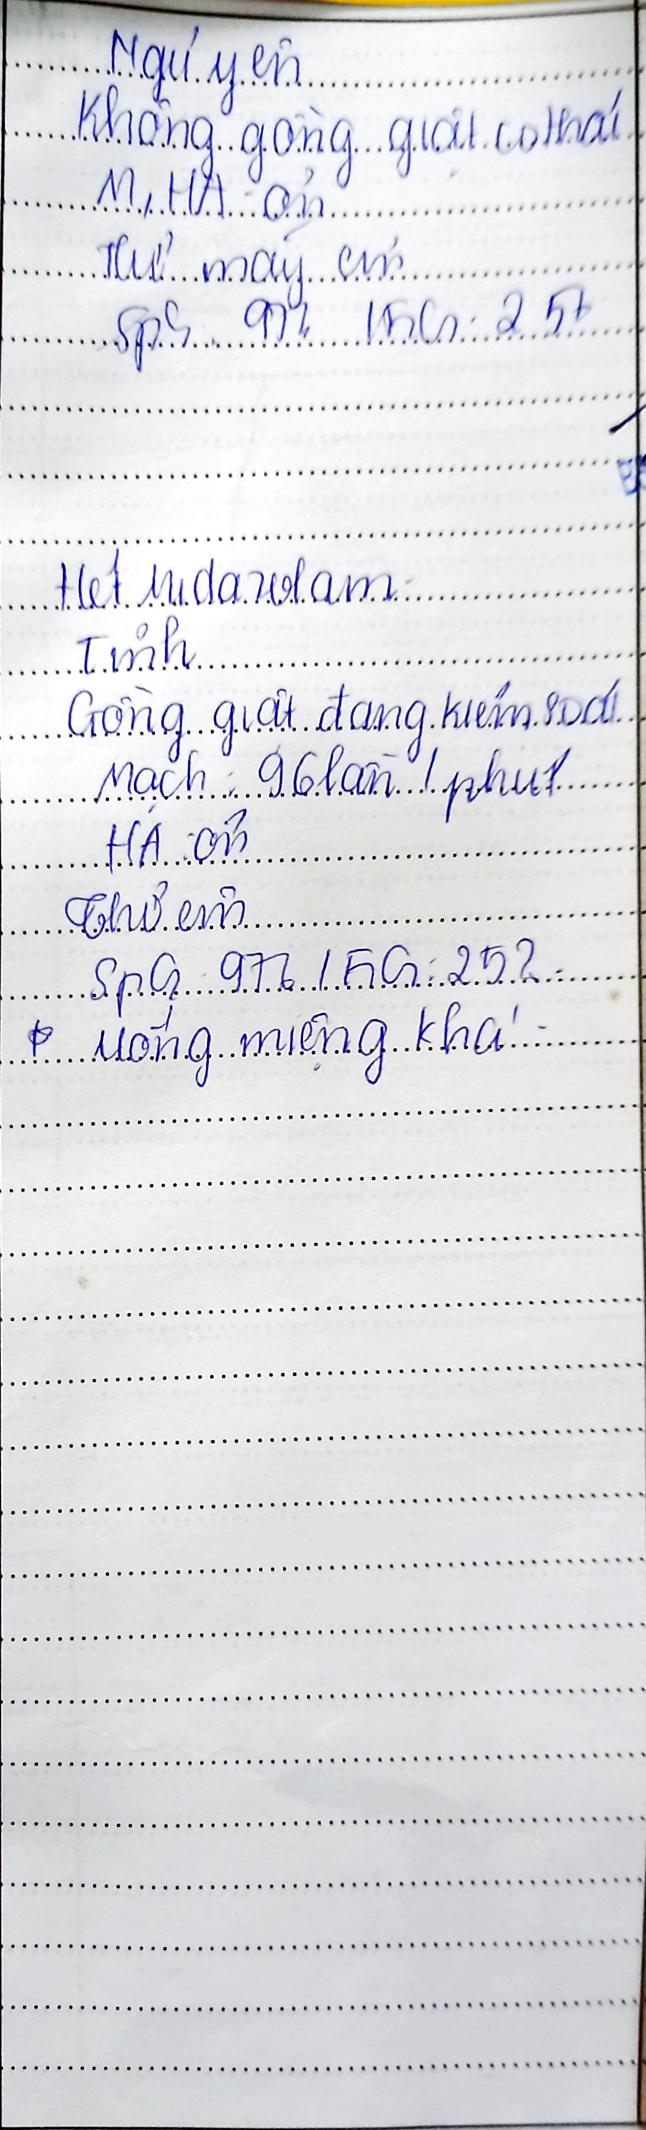 Ngủ yên
Không gồng giật cơ thái
M, HA: ổn
Thở máy êm
SpO₂: 97% / FiO₂: 25%
Hết Midazolam.
Tỉnh
Gồng giật đang kiểm soát
Mạch: 96 lần / phút
HA: ổn
Thở êm
SpO₂: 97% / FiO₂: 25%.
Uống miệng khá.